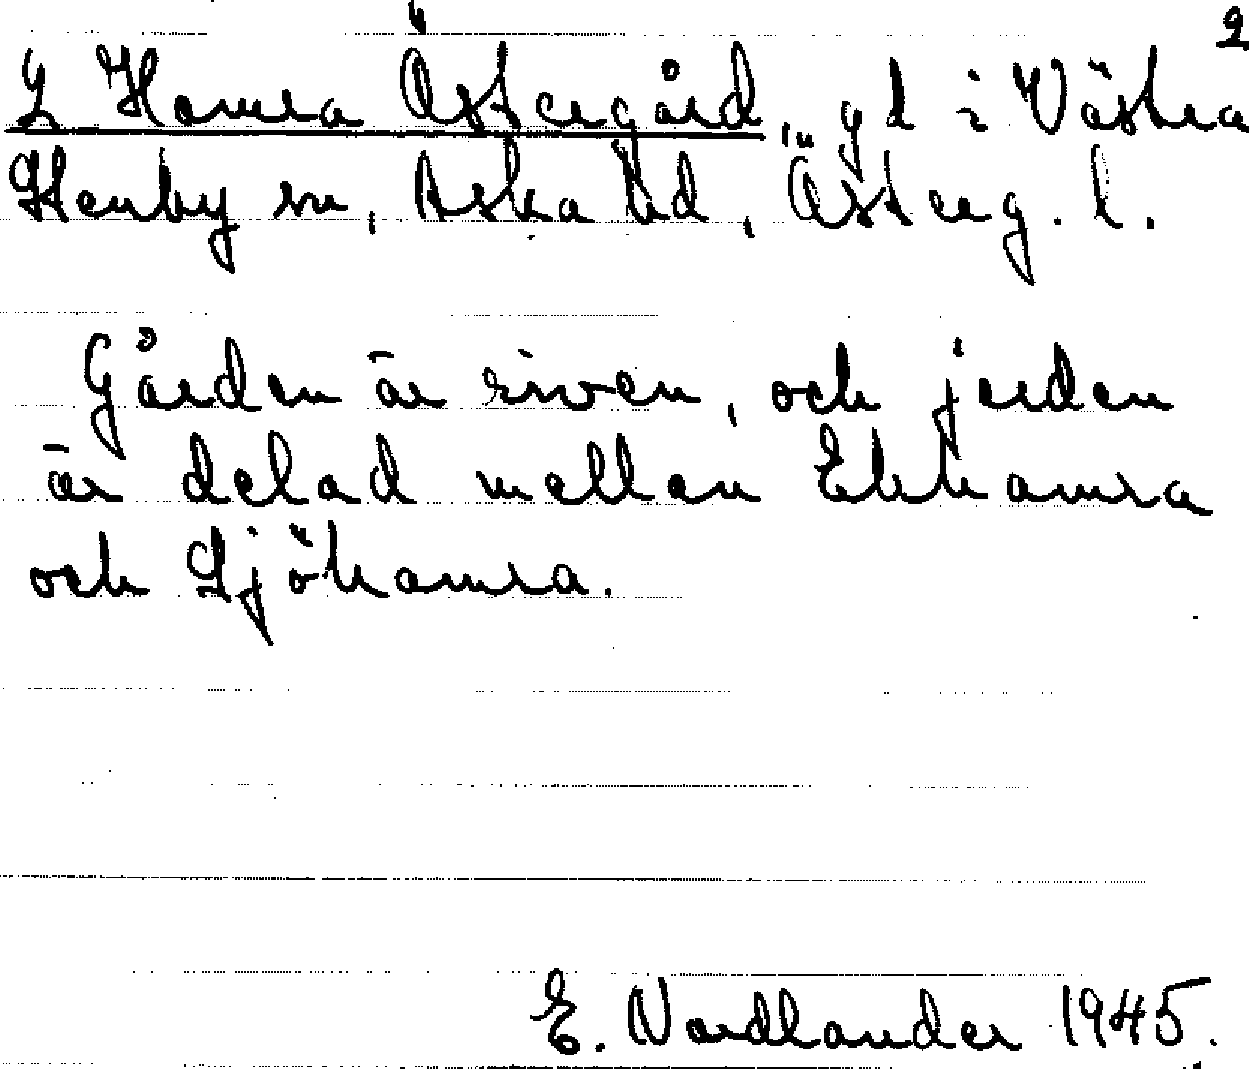 2
Hamra Östergård, gd i Västra
Stenby sn, Aska hd, Österg. l.
Gården är riven, och jorden
är delad mellan Ekhamra
och Sjöhamra.
E. Nordlander 1945.